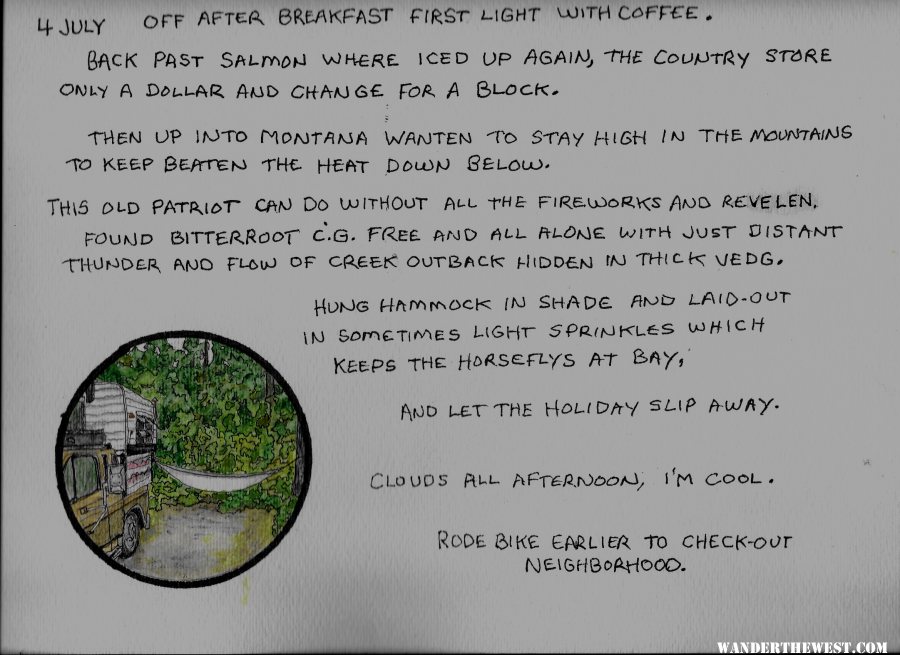 4 JULY OFF AFTER BREAKFAST FIRST LIGHT WITH COFFEE.
BACK PAST SALMON WHERE ICED UP AGAIN, THE COUNTRY STORE
ONLY A DOLLAR AND CHANGE FOR A BLOCK.
THEN UP INTO MONTANA WANTEN TO STAY HIGH IN THE MOUNTAINS
TO KEEP BEATEN THE HEAT DOWN BELOW.
THIS OLD PATRIOT CAN DO WITHOUT ALL THE FIREWORKS AND REVELEN.
FOUND BITTERROOT C.G. FREE AND ALL ALONE WITH JUST DISTANT
THUNDER AND FLOW OF CREEK OUTBACK HIDDEN IN THICK VEDG.
HUNG HAMMOCK IN SHADE AND LAID-OUT
IN SOMETIMES LIGHT SPRINKLES WHICH
KEEPS THE HORSEFLYS AT BAY,
AND LET THE HOLIDAY SLIP AWAY.
CLOUDS ALL AFTERNOON, I'M COOL.
RODE BIKE EARLIER TO CHECK-OUT
NEIGHBORHOOD.
WANDERTHEWEST.COM